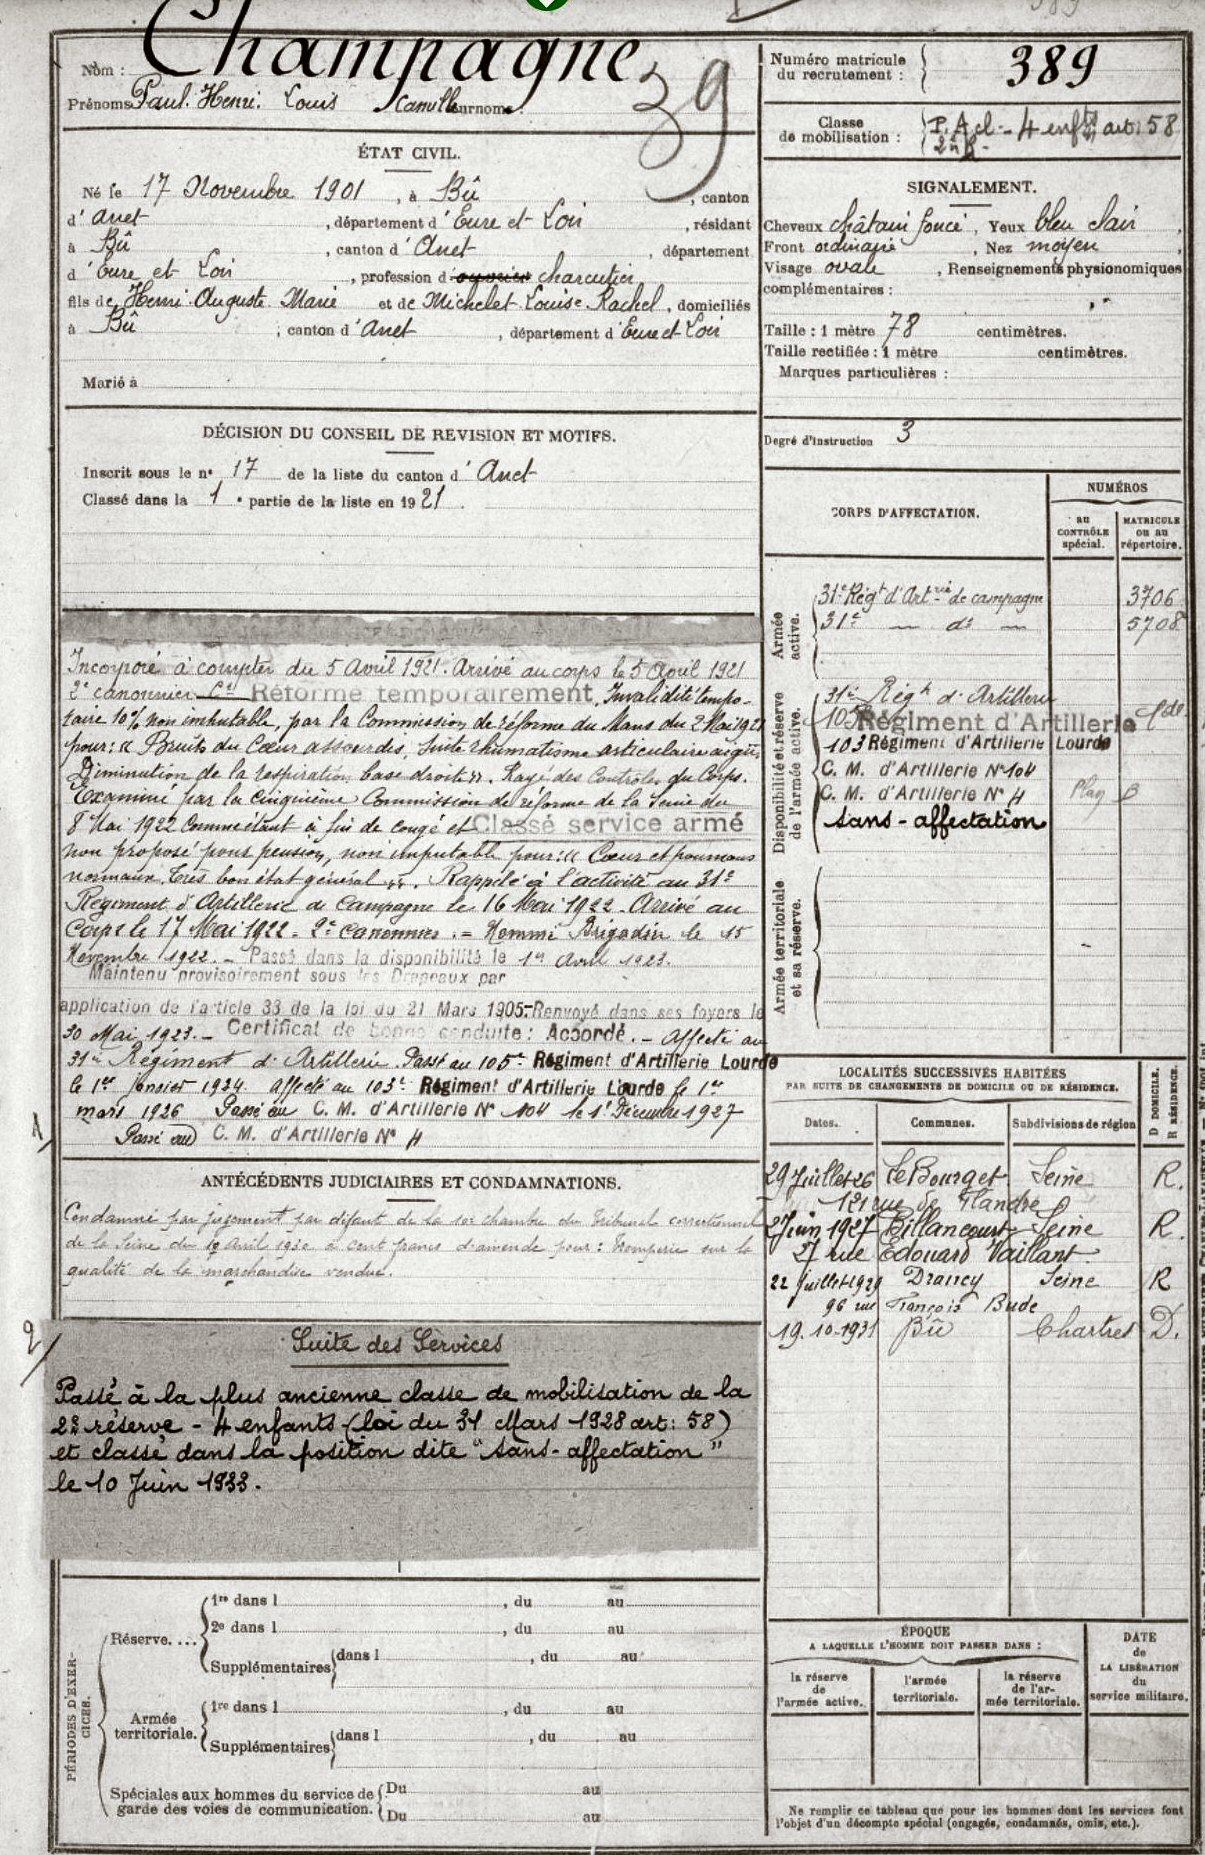 389
Champagne
Nom :
Prénoms Paul. Henri. Louis Camille surnoms :
39
ÉTAT CIVIL.
Né le 17 Novembre 1901, à Bû, canton
d' Anet, département d' Eure et Loir, résidant
à Bû, canton d' Anet, département
d' Eure et Loir, profession d ouvrier charcutier
fils de Henri Auguste Marie et de Michelet Louise Rachel, domiciliés
à Bû, canton d' Anet, département d' Eure et Loir
Marié à
DÉCISION DU CONSEIL DE REVISION ET MOTIFS.
Inscrit sous le n° 17 de la liste du canton d' Anet
Classé dans la 1 e partie de la liste en 1921.
Incorporé à compter du 5 Avril 1921. Arrivé au corps le 5 Avril 1921
2e canonnier Ct Réformé temporairement, Invalidité tempo-
raire 10% non imputable, par la Commission de réforme du Mans du 2 Mai 1921
pour : "Bruits du Cœur assourdis, suite rhumatisme articulaire aigu,
Diminution de la respiration base droite". Rayé des Contrôles du Corps.
Examiné par la cinquième Commission de réforme de la Seine du
8 Mai 1922 Commettant à fin de congé et Classé service armé
non proposé pour pension, non imputable pour : "Cœur et poumons
normaux. Très bon état général". Rappelé à l'activité au 31e
Régiment d'Artillerie de Campagne le 16 Mai 1922. Arrivé au
Corps le 17 Mai 1922. 2e canonnier. = Nommé Brigadier le 15
Novembre 1922. - Passé dans la disponibilité le 1er Avril 1923.
Maintenu provisoirement sous les Drapeaux par
application de l'article 33 de la loi du 21 Mars 1905. Renvoyé dans ses foyers le
30 Mai 1923. - Certificat de bonne conduite : Accordé. - Affecté au
31e Régiment d'Artillerie. Passé au 105e Régiment d'Artillerie Lourde
le 1er Janvier 1924. affecté au 103e Régiment d'Artillerie Lourde le 1er
mars 1926 Passé au C. M. d'Artillerie N° 104 le 1er Décembre 1927
1/ Passé au C. M. d'Artillerie N° 4
ANTÉCÉDENTS JUDICIAIRES ET CONDAMNATIONS.
Condamné par jugement par défaut de la 10e chambre du Tribunal correctionnel
de la Seine du 19 Avril 1930 à cent francs d'amende pour : tromperie sur la
qualité de la marchandise vendue.
2/
Suite des Services
Passé à la plus ancienne classe de mobilisation de la
2e réserve - 4 enfants (loi du 31 Mars 1928 art : 58)
et classé dans la position dite "sans-affectation"
le 10 Juin 1933.
PÉRIODES D'EXER-
CICES.
Réserve....
1re dans l , du au
2e dans l , du au
Supplémentaires dans l , du au
Armée
territoriale.
1re dans l , du au
Supplémentaires dans l , du au
Spéciales aux hommes du service de
garde des voies de communication.
Du au
Du au
Numéro matricule
du recrutement : 389
Classe
de mobilisation : P. Acl - 4 enfts art. 58
2e R -
SIGNALEMENT.
Cheveux châtain foncé, Yeux bleu clair,
Front ordinaire, Nez moyen,
Visage ovale, Renseignements physionomiques
complémentaires :
Taille : 1 mètre 78 centimètres.
Taille rectifiée : 1 mètre centimètres.
Marques particulières :
Degré d'instruction 3
CORPS D'AFFECTATION.
NUMÉROS
au
CONTRÔLE
spécial.
MATRICULE
ou au
répertoire.
Armée
active.
31e Régt d'Artrie de campagne 3706
31e - do - 5708
Disponibilité et réserve
de l'armée active.
31e Régt d'Artillerie
105 Régiment d'Artillerie
103 Régiment d'Artillerie Lourde
C. M. d'Artillerie N° 104
C. M. d'Artillerie N° 4 Plan B
sans-affectation
Armée territoriale
et sa réserve.
LOCALITÉS SUCCESSIVES HABITÉES
PAR SUITE DE CHANGEMENTS DE DOMICILE OU DE RÉSIDENCE.
D DOMICILE.
R RÉSIDENCE.
Dates. Communes. Subdivisions de région
29 Juillet 26 Le Bourget Seine R.
121 rue de Flandre
27 juin 1927 Billancourt Seine R.
27 rue Edouard Vaillant
22 Juillet 1929 Drancy Seine R
96 rue François Bude
19.10.1931 Bû Chartres D.
ÉPOQUE
A LAQUELLE L'HOMME DOIT PASSER DANS :
la réserve
de
l'armée active.
l'armée
territoriale.
la réserve
de l'ar-
mée territoriale.
DATE
de
LA LIBÉRATION
du
service militaire.
Ne remplir ce tableau que pour les hommes dont les services font
l'objet d'un décompte spécial (engagés, condamnés, omis, etc.).